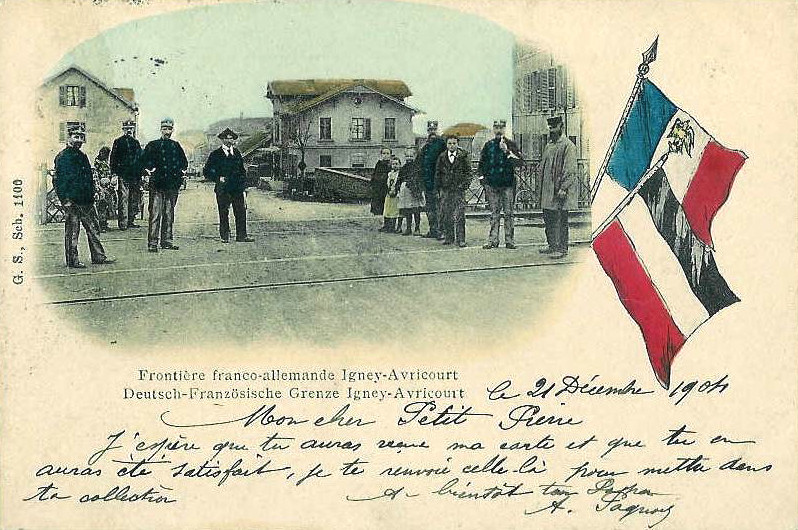 G. S., Sch. 1100
Frontière franco-allemande Igney-Avricourt
Deutsch-Französische Grenze Igney-Avricourt
le 21 Décembre 1904
Mon cher Petit Pierre
J'espère que tu auras reçue ma carte et que tu en
auras été satisfait, je te renvoie celle-là pour mettre dans
ta collection
A bientôt ton
A.